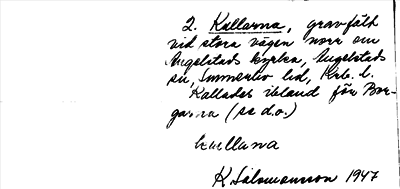 2. Kullarna, gravfält
vid stora vägen norr om
Angelstads kyrka, Angelstads
sn, Sunnerbo hd, Krb. l.
Kallades ibland för Bor-
garna (se d.o.)
kullana
K. Salomonsson 1947